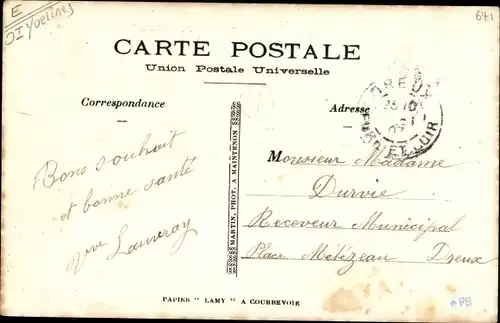 E
St Yvelines
641
CARTE POSTALE
Union Postale Universelle
Correspondance
Adresse
DREUX
EURE-ET-LOIR
Bons souhait
et bonne santé
Vve Lauvray
MARTIN, PHOT. A MAINTENON
Monsieur Madame
Durvie
Receveur Municipal
Place Métézeau Dreux
PAPIER " LAMY " A COURBEVOIE
*PB